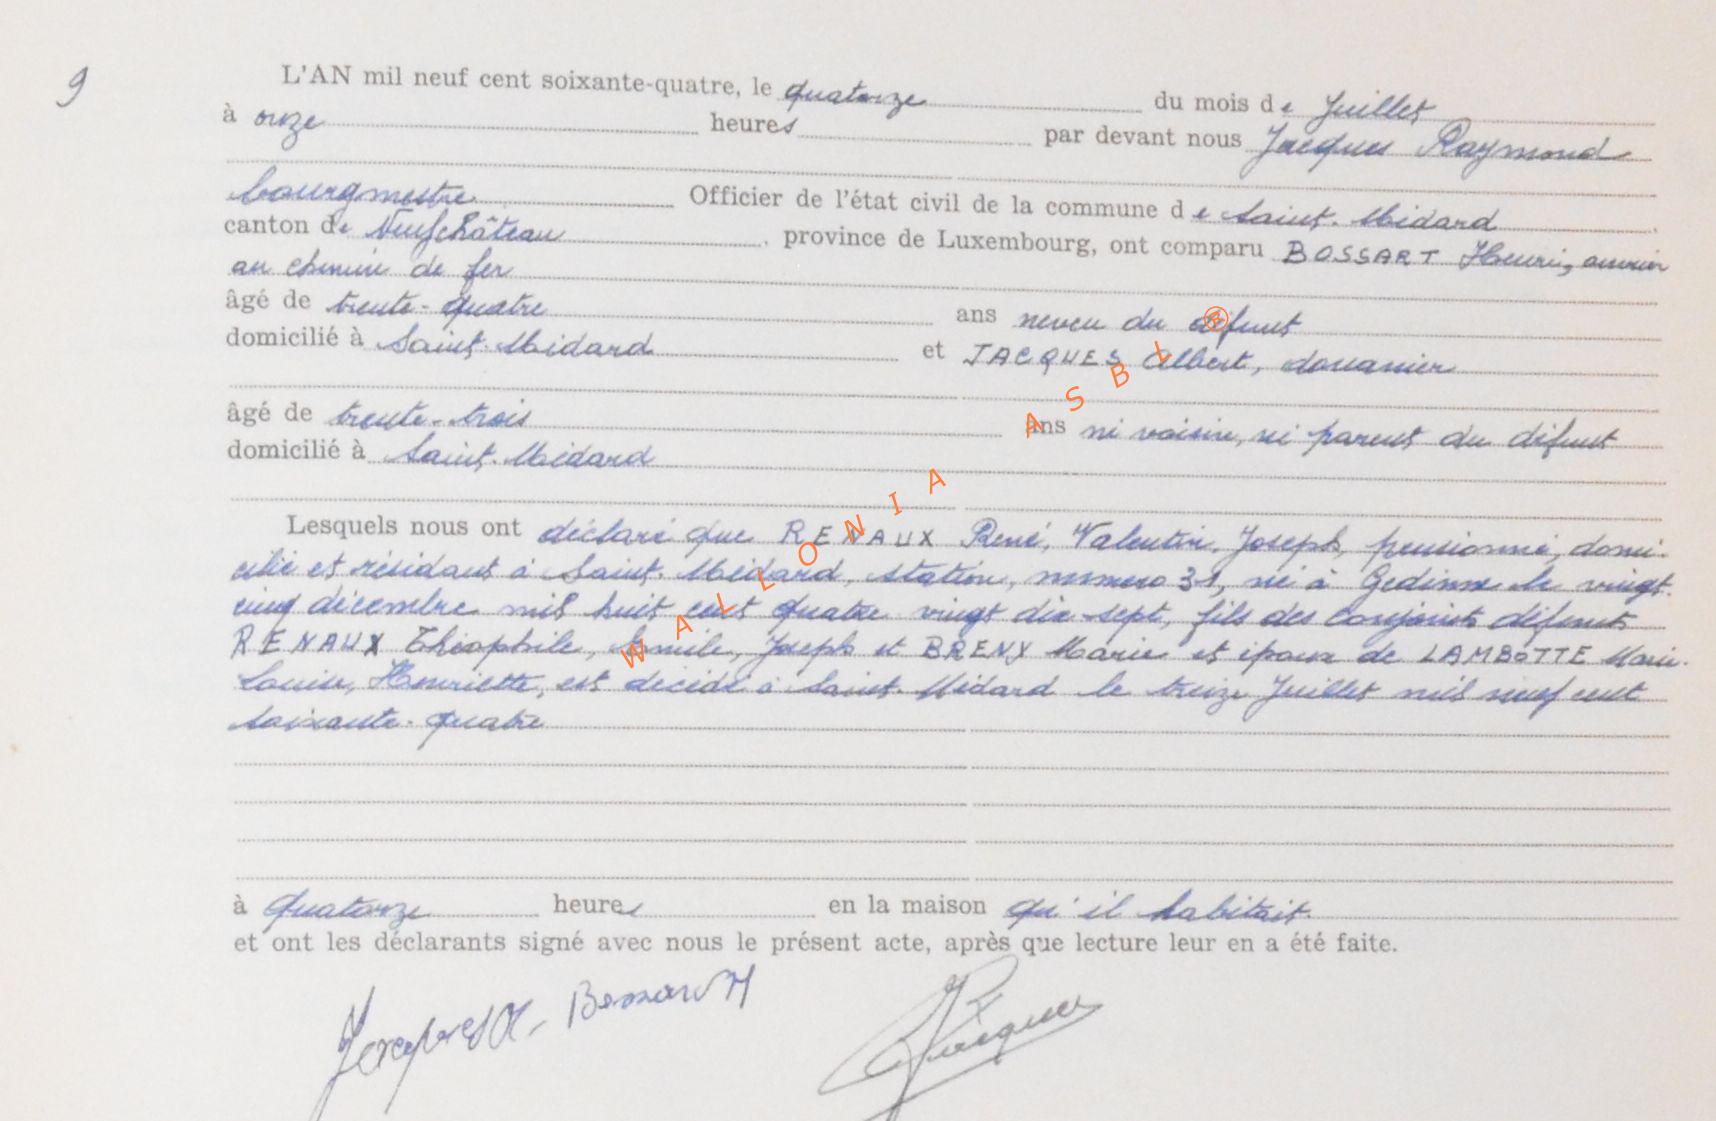 9
L'AN mil neuf cent soixante-quatre, le quatorze du mois de Juillet
à onze heures par devant nous Jacques Raymond
bourgmestre Officier de l'état civil de la commune de Saint-Médard
canton de Neufchâteau, province de Luxembourg, ont comparu BOSSART Henri, ouvrier
au chemin de fer
âgé de trente-quatre ans neveu du défunt
domicilié à Saint-Médard et JACQUES Albert, douanier
âgé de trente-trois ans ni voisin, ni parent du défunt
domicilié à Saint-Médard
Lesquels nous ont déclaré que RENAUX René, Valentin, Joseph, pensionné, domi-
cilié et résidant à Saint-Médard, station, numéro 31, né à Gedinne le vingt-
cinq décembre mil huit cent quatre vingt dix-sept, fils des conjoints défunts
RENAUX Théophile, Emile, Joseph et BRENY Marie et époux de LAMBOTTE Marie-
Louise, Henriette, est décédé à Saint-Médard le treize Juillet mil neuf cent
soixante-quatre
à quatorze heures en la maison qu'il habitait.
et ont les déclarants signé avec nous le présent acte, après que lecture leur en a été faite.
Bossart H
Jacques
WALLONIA ASBL ®